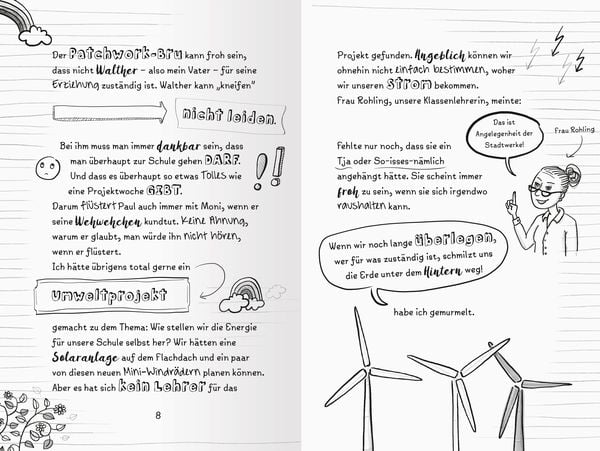 Der Patchwork-Bru kann froh sein,
dass nicht Walther – also mein Vater – für seine
Erziehung zuständig ist. Walther kann „kneifen“
nicht leiden.
Bei ihm muss man immer dankbar sein, dass
man überhaupt zur Schule gehen DARF.
Und dass es überhaupt so etwas Tolles wie
eine Projektwoche GIBT.
Darum flüstert Paul auch immer mit Moni, wenn er
seine Wehwehchen kundtut. Keine Ahnung,
warum er glaubt, man würde ihn nicht hören,
wenn er flüstert.
Ich hätte übrigens total gerne ein
Umweltprojekt
gemacht zu dem Thema: Wie stellen wir die Energie
für unsere Schule selbst her? Wir hätten eine
Solaranlage auf dem Flachdach und ein paar
von diesen neuen Mini-Windrädern planen können.
Aber es hat sich kein Lehrer für das
8
Projekt gefunden. Angeblich können wir
ohnehin nicht einfach bestimmen, woher
wir unseren Strom bekommen.
Frau Rohling, unsere Klassenlehrerin, meinte:
Das ist
Angelegenheit der
Stadtwerke!
Frau Rohling
Fehlte nur noch, dass sie ein
Tja oder So-isses-nämlich
angehängt hätte. Sie scheint immer
froh zu sein, wenn sie sich irgendwo
raushalten kann.
Wenn wir noch lange überlegen,
wer für was zuständig ist, schmilzt uns
die Erde unter dem Hintern weg!
habe ich gemurmelt.